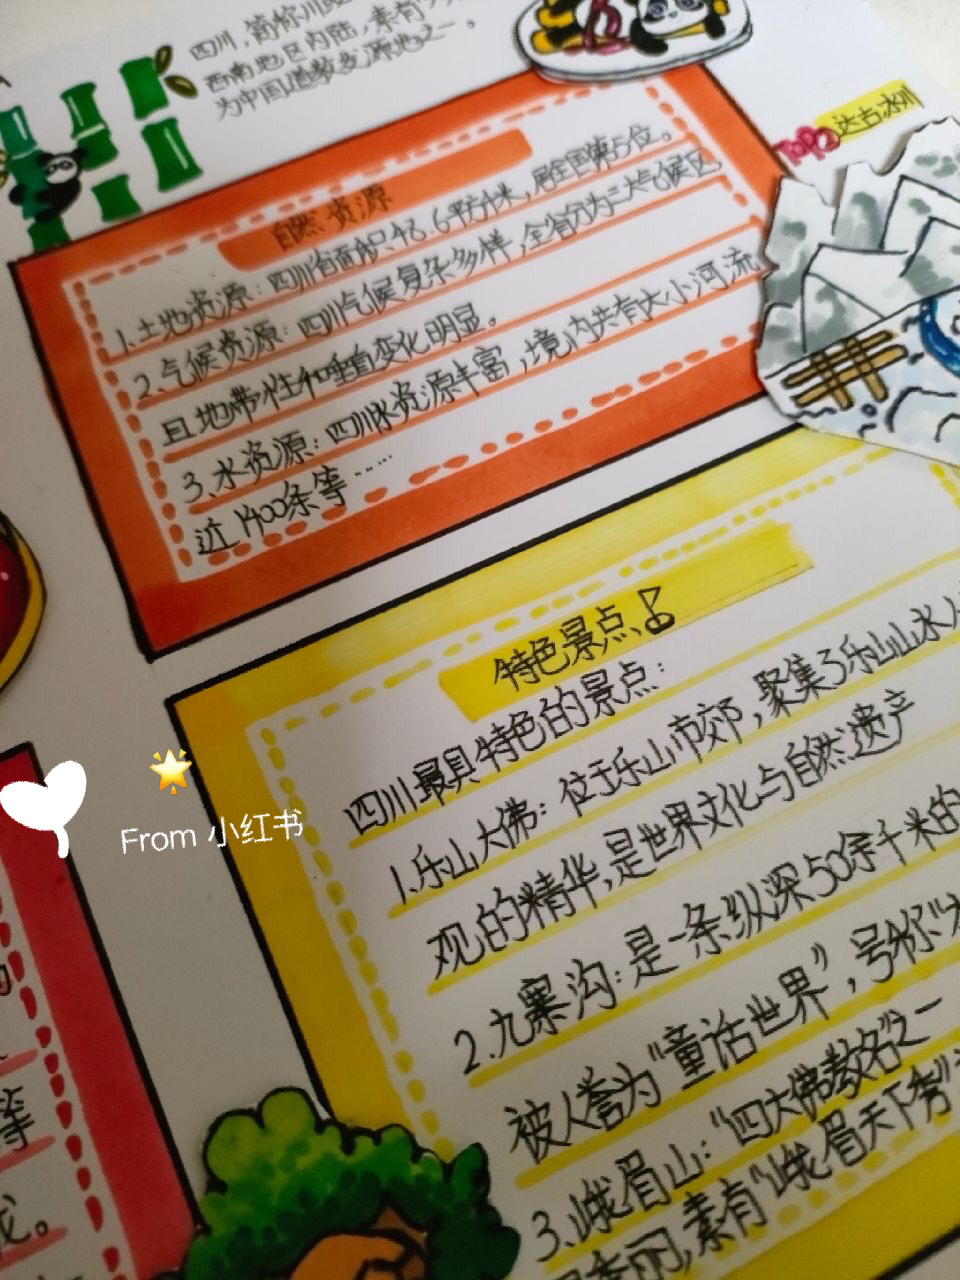 四川，简称川
西南地区内陆，素有
为中国道教发源地之一。
达古冰川
自然资源
1.土地资源：四川省面积48.6平方千米，居全国第5位。
2.气候资源：四川气候复杂多样，全省分为三大气候区，
且地带性和垂直变化明显。
3.水资源：四川水资源丰富，境内共有大小河流
近1400条等……
特色景点
四川最具特色的景点：
1.乐山大佛：位于乐山市郊，聚集了乐山山水人
观的精华，是世界文化与自然遗产
2.九寨沟：是一条纵深50余千米的
被人誉为“童话世界”，号称“
3.峨眉山：“四大佛教名”之一
秀丽，素有“峨眉天下秀”
From 小红书
等